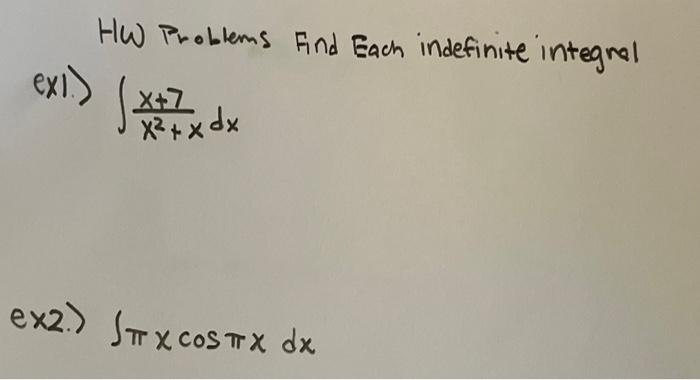 HW Problems Find Each indefinite integral
ex1.) ∫ x+7 / x² + x dx
ex2.) ∫π x cos πx dx